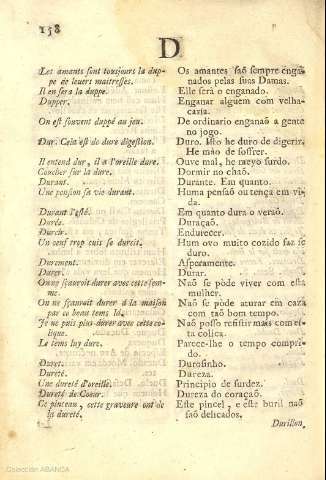 158
D
Les amants sont tousjours la dup-
pe de leurs maitresses.
Il en sera la duppe.
Dupper.
On est souvent duppé au jeu.
Dur. Cela est de dure digestion.
Il entend dur, il a l'oreille dure.
Coucher sur la dure.
Durant.
Une pension sa vie durant.
Durant l'esté.
Durée.
Durcir.
Un oeuf trop cuit se durcit.
Durement.
Durer.
On ne sçauroit durer avec cette fem-
me.
On ne sçauroit durer à la maison
par ce beau tems là.
Je ne puis plus durer avec cette co-
lique.
Le tems luy dure.
Duret.
Dureté.
Une dureté d'oreille.
Dureté de Coeur.
Ce pinceau, cette graveure ont de
la dureté.
Os amantes saõ sempre enga-
nados pelas suas Damas.
Elle serà o enganado.
Enganar alguem com velha-
caria.
De ordinario enganaõ a gente
no jogo.
Duro. Isto he duro de digerir.
He mào de soffrer.
Ouve mal, he meyo surdo.
Dormir no chaõ.
Durante. Em quanto.
Huma pensaõ ou tença em vi-
da.
Em quanto dura o veraõ.
Duraçaõ.
Endurecer.
Hum ovo muito cozido faz se
duro.
Asperamente.
Durar.
Naõ se pòde viver com esta
mulher.
Naõ se pòde aturar em caza
com taõ bom tempo.
Naõ posso resistir mais com es-
ta colica.
Parece-lhe o tempo compri-
do.
Durosinho.
Dureza.
Principio de surdez.
Dureza do coraçaõ.
Este pincel, e este buril naõ
saõ delicados.
Durillon,
Colección ABANCA